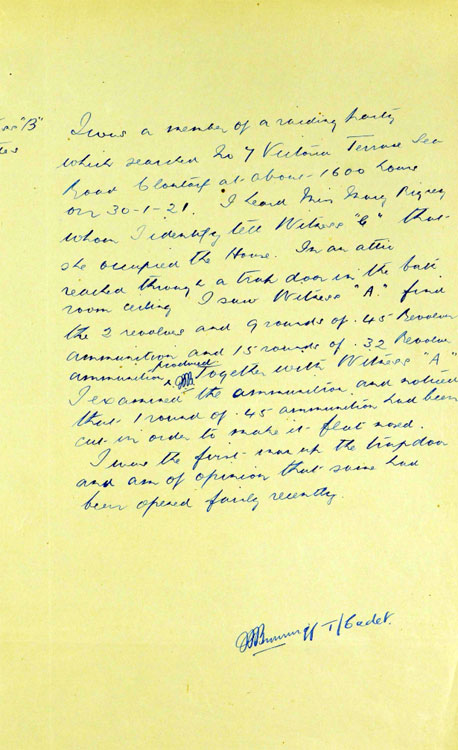 "B"
I was a member of a raiding party
which searched No 7 Victoria Terrace Sea
Road Clontarf at about 1600 hours
on 30-1-21. I heard Miss Mary Rigney
whom I identify tell Witness "C" that
she occupied the House. In an attic
reached through a trap door in the bath
room ceiling I saw Witness "A" find
the 2 revolvers and 9 rounds of .45 Revolver
ammunition and 15 rounds of .32 Revolver
ammunition produced. Together with Witness "A"
I examined the ammunition and noticed
that 1 round of .45 ammunition had been
cut in order to make it flat nosed.
I was the first man up the trap door
and am of opinion that same had
been opened fairly recently.
T/Cadet.